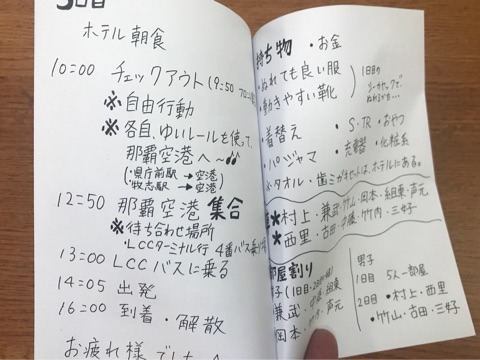 3日目
ホテル朝食
10:00 チェックアウト(9:50
※自由行動
※各自、ゆいレールを使って、
那覇空港へ~♪
(・県庁前駅→空港)
(・牧志駅→空港)
12:50 那覇空港 集合
※待ち合わせ場所
・LCCターミナル行 4番バス乗り
13:00 LCCバスに乗る
14:05 出発
16:00 到着・解散
お疲れ様でした
持ち物 ・お金
・ぬれても良い服
・動きやすい靴
1日目の
ぬれるから…
・着替え ・S・TR ・おやつ
・パジャマ ・充電器 ・化粧系
※タオル・歯ミガキセットは、ホテルにある。
※村上・兼武・竹山・岡本・組東・声元
※西里・古田・中藤・竹内・三好
部屋割り
子(1日目・2日目
兼武・組東
岡本・声元
男子
1日目 5人一部屋
2日目 ・村上・西里
・竹山・古田・三好